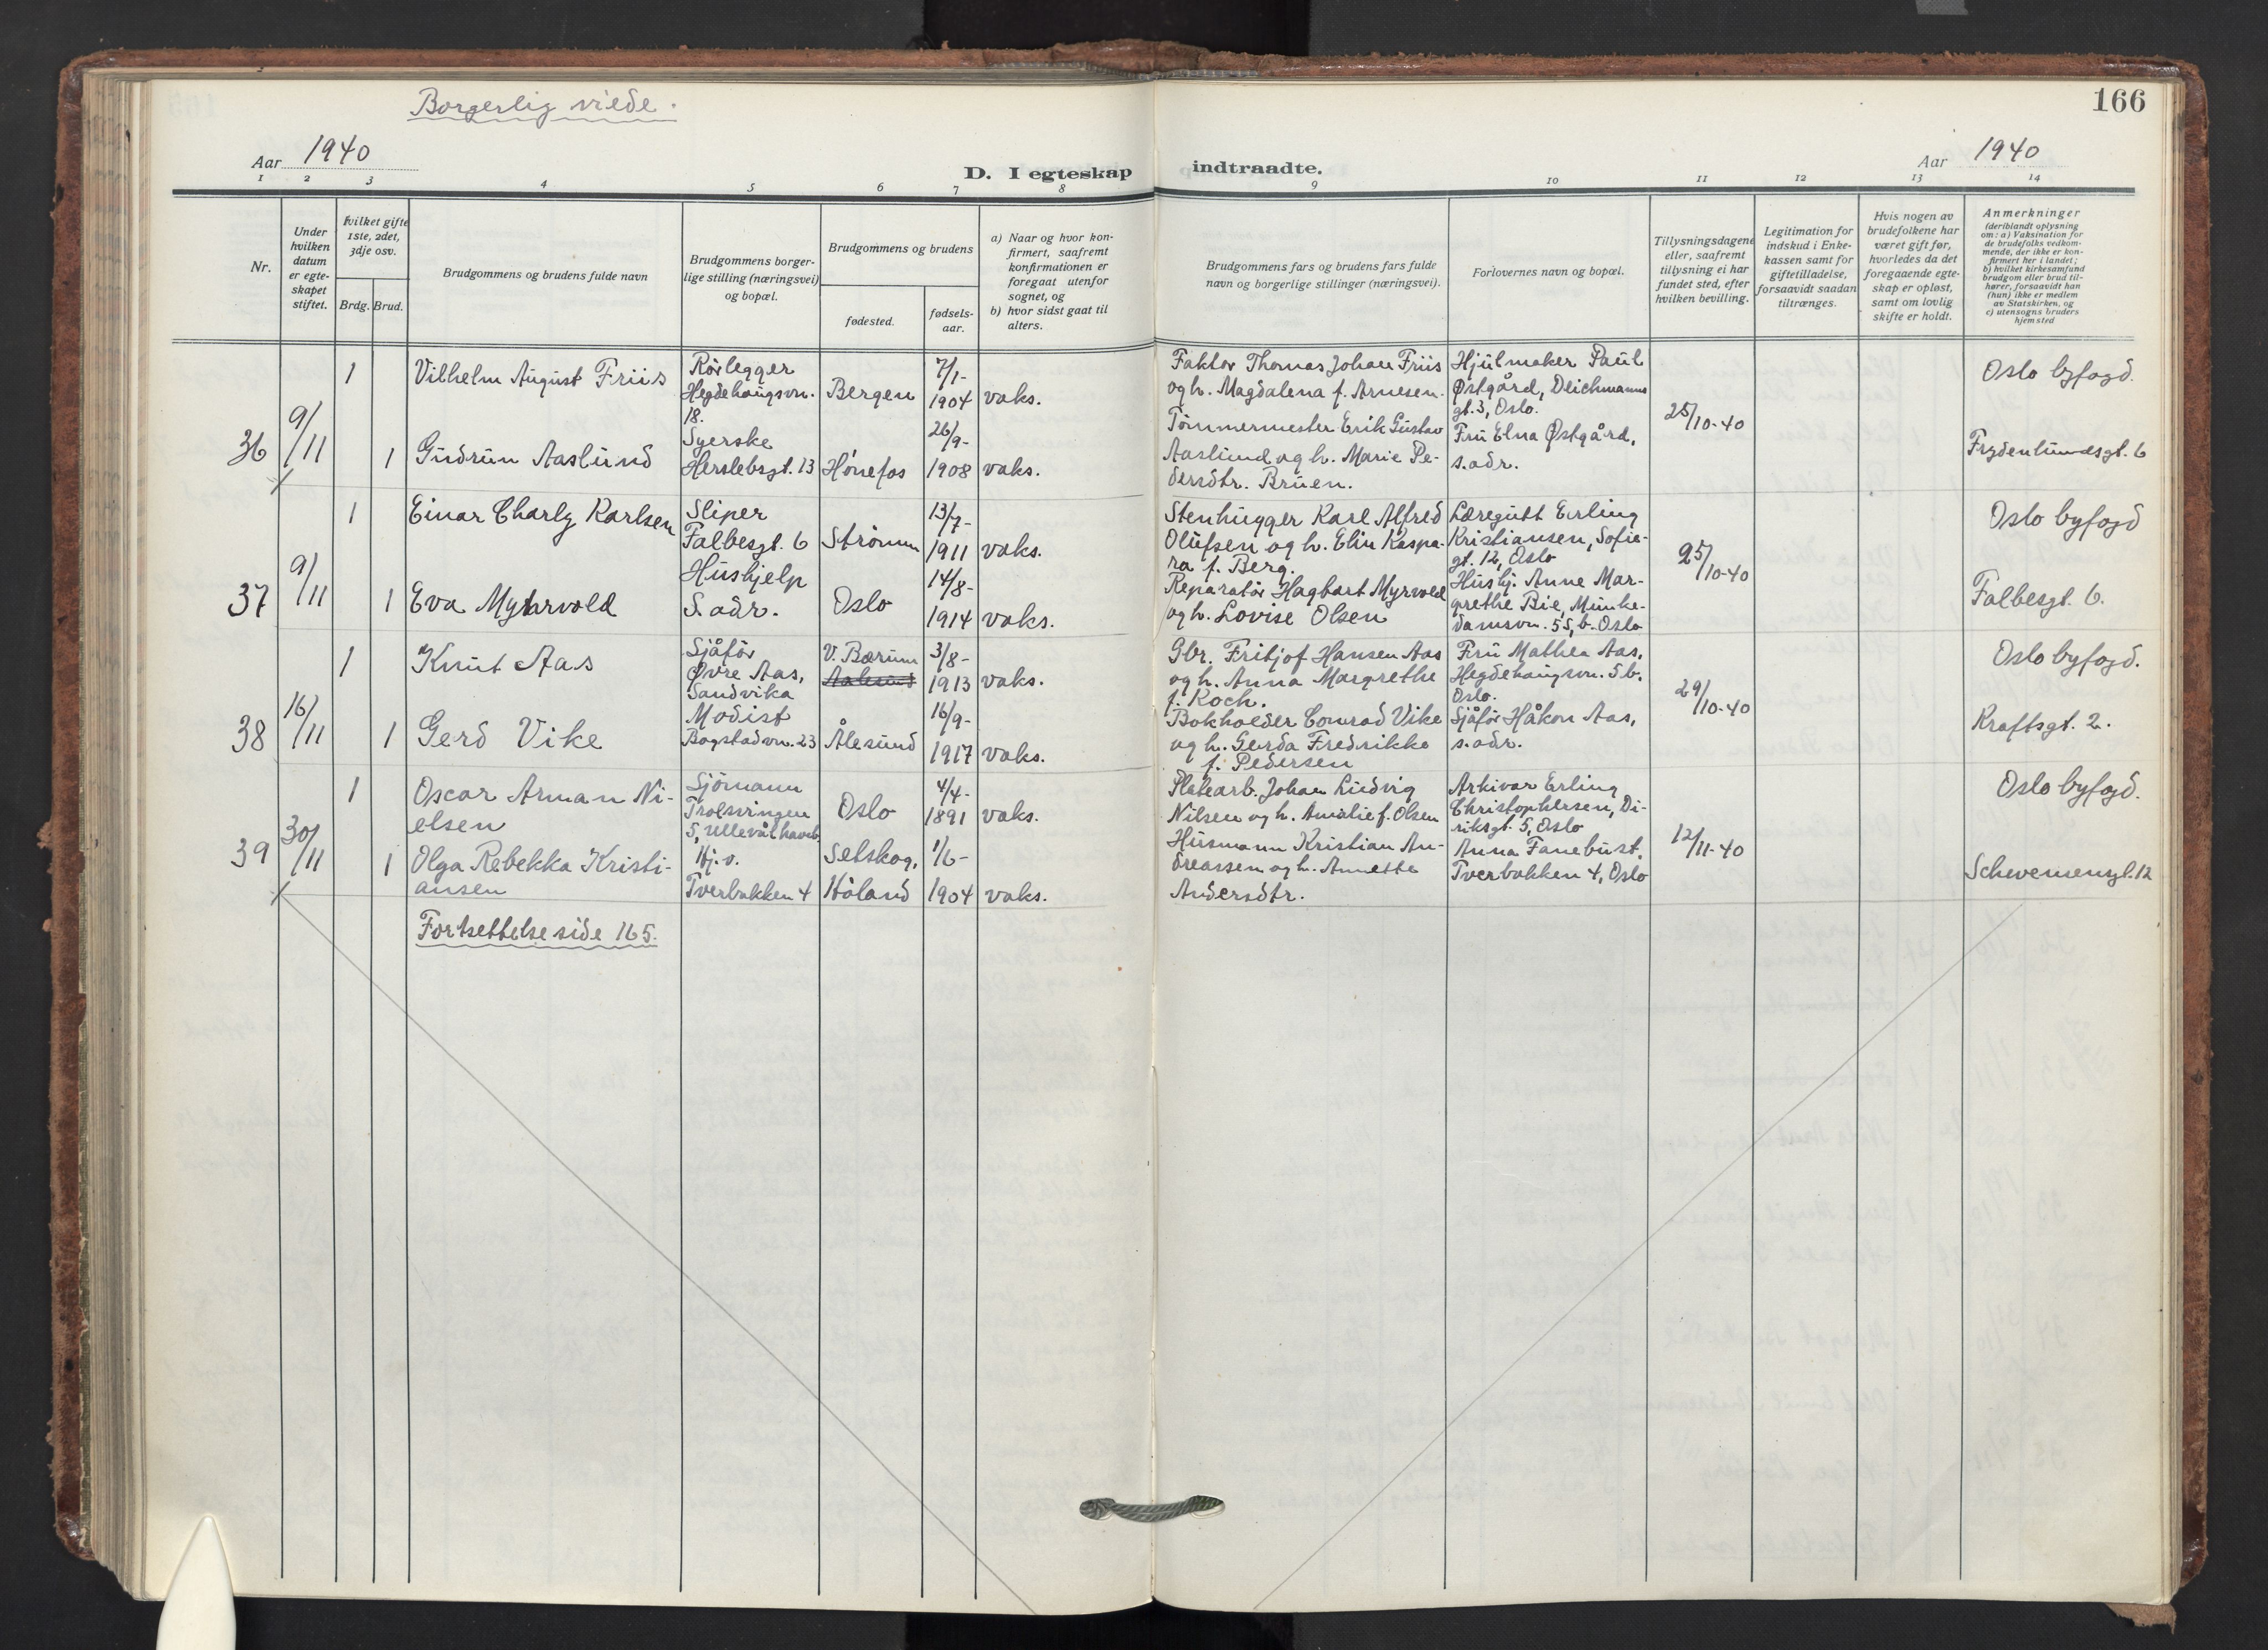 Borgerlig viede.
166
Aar 1940
D. I egteskap indtraadte.
Aar 1940
1 2 3 4 5 6 7 8 9 10 11 12 13 14
Nr.
Under hvilken datum er egteskapet stiftet.
Hvilket gifte 1ste, 2det, 3dje osv.
Brdg. Brud.
Brudgommens og brudens fulde navn
Brudgommens borger-
lige stilling (næringsvei)
og bopæl.
Brudgommens og brudens
fødested.
fødsels-
aar.
a) Naar og hvor kon-
firmert, saafremt
konfirmationen er
foregaat utenfor
sognet, og
b) hvor sidst gaat til
alters.
Brudgommens fars og brudens fars fulde
navn og borgerlige stillinger (næringsvei).
Forlovernes navn og bopæl.
Tillysningsdagene
eller, saafremt
tillysning ei har
fundet sted, efter
hvilken bevilling.
Legitimation for
indskud i Enke-
kassen samt for
giftetilladelse,
forsaavidt saadan
tiltrænges.
Hvis nogen av
brudefolkene har
været gift før,
hvorledes da det
foregaaende egte-
skap er opløst,
samt om lovlig
skifte er holdt.
Anmerkninger
(deriblandt oplysning
om: a) Vaksination for
de brudefolks vedkom-
mende, der ikke er kon-
firmert her i landet;
b) hvilket kirkesamfund
brudgom eller brud til-
hører, forsaavidt han
(hun) ikke er medlem
av Statskirken, og
c) utensogns bruders
hjemsted
36
9/11
1
Vilhelm August Friis
Rørlegger
Hegdehaugsvn.
18.
Bergen
7/1-
1904
vaks.
Faktor Thomas Johan Friis
og h. Magdalena f. Arnesen.
Hjulmaker Paul
Østgård, Deichmanns
gt. 3, Oslo.
25/10-40
Oslo byfogd.
1
Gudrun Aaslund
Syerske
Herslebsgt. 13
Hønefos
26/9-
1908
vaks.
Tømmermester Erik Gustav
Aaslund og h. Marie Pe-
dersdtr. Bruen.
Fru Elna Østgård,
s. adr.
Frydenlundsgt. 6
37
9/11
1
Einar Charly Karlsen
Sliper
Falbesgt. 6
Strømm
13/7-
1911
vaks.
Stenhugger Karl Alfred
Olufsen og h. Elin Kaspa-
ra f. Berg.
Læregutt Erling
Kristiansen, Sofie-
gt. 12, Oslo
25/10-40
Oslo byfogd
1
Eva Myhrvold
Hushjelp
S. adr.
Oslo
14/8-
1914
vaks.
Reparatør Hagbart Myrvold
og h. Lovise Olsen
Hushj. Anne Mar-
grethe Bie, Munke-
damsvn. 55, b. Oslo
Falbesgt. 6.
38
16/11
1
Knut Aas
Sjåfør
Øvre Aas,
Sandvika
V. Bærum
Aalesund
3/8-
1913
vaks.
Gbr. Fritjof Hansen Aas
og h. Anna Margrethe
f. Koch.
Fru Mathea Aas,
Hegdehaugsvn. 5 b,
Oslo.
29/10-40
Oslo byfogd.
1
Gerd Vike
Modist
Bogstadvn. 23
Ålesund
16/9-
1917
vaks.
Bokholder Conrad Vike
og h. Gerda Fredrikke
f. Pedersen
Sjåfør Håkon Aas,
s. adr.
Kraftsgt. 2.
39
30/11
1
Oscar Arman Ni-
elsen
Sjømann
Troesvingen
5, Ullevål haveb.
Oslo
4/4-
1891
vaks.
Platearb. Johan Ludvig
Nilsen og h. Amalie f. Olsen
Arkivar Erling
Christophersen, Di-
riksgt. 5, Oslo
12/11-40
Oslo byfogd.
1
Olga Rebekka Kristi-
ansen
Hj. v.
Tverbakken 4
Setskog,
Høland
1/6-
1904
vaks.
Husmann Kristian An-
dreassen og h. Annette
Andersdtr.
Anna Fanebust,
Tverbakken 4, Oslo
Schwensensgt. 12
Fortsettelse side 165.